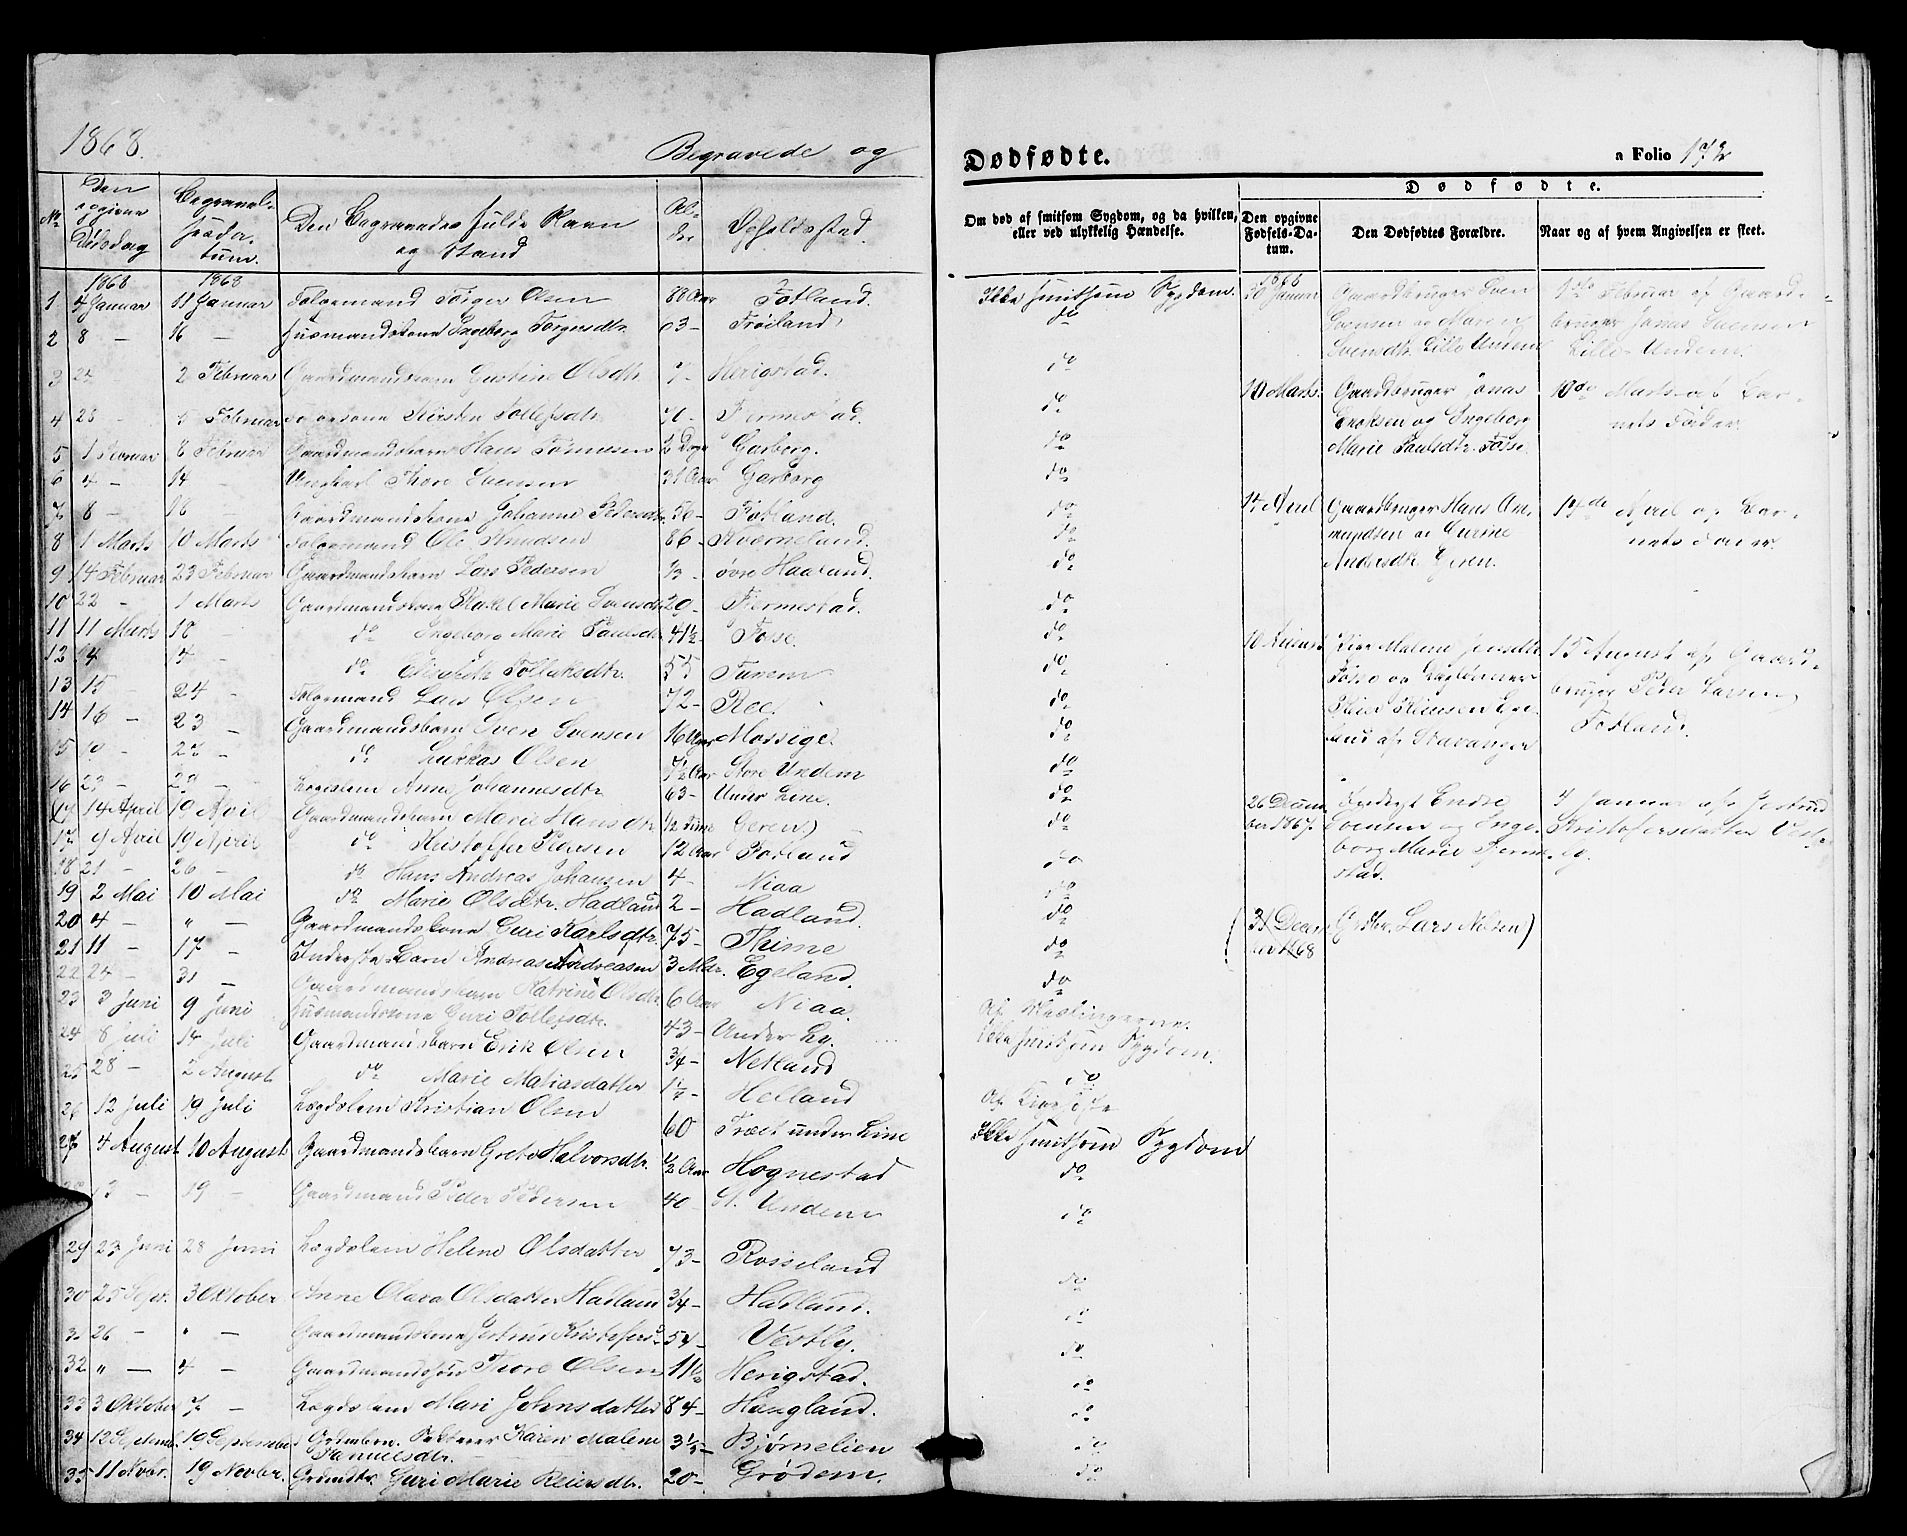 1868.
Begravede og
Dødfødte.
a Folio 172
No
Den opgivne Dödsdag
Begravelsesdatum.
Den Begravedes fulde Navn og Stand
Alder
Opholdssted.
Om død af smitsom Sygdom, og da hvilken, eller ved ulykkelig Hændelse.
Dødfødte.
Den opgivne Fødsels-Datum.
Den Dødfødtes Forældre.
Naar og af hvem Angivelsen er skeet.
1868 1868
1 4 Januar 11 Januar Folgemand Torger Olsen 80 Aar Fotland. Ikke smitsom Sygdom.
2 8 — 16 — Husmandskone Ingeborg Torgersdtr. 63 — Fröiland do
3 2 Februar Gaardmandsbarn Gurine Olsdtr 7 - Herigstad. do
4 23 - 5 Februar Kirsten Tollefsdtr. 70 - Fiermestad. do
5 1 Februar 8 Februar Gaardmandsbarn Hans 1/2 Garborg. do
6 4 — 14 — Ungkarl Thore Svensen 31 Aar Garborg do
7 8 — 18 — Gaardmandskone Johanne Pedersdtr. 56 - Fotland. do
8 1 Marts 10 Marts Folgemand Ole Knudsen 86 - Kverneland. do
9 14 Februar 23 Februar Gaardmandsbarn Lars Pedersen 1/3 - övre Haaland. do
10 22 - 1 Marts Gaardmandskone Rakel Marie Svensdtr 29 - Fiermestad. do
11 11 Marts 18 - do Ingeborg Marie Paulsdtr 41 1/2 - Fosse. do
12 14 - do Elisabeth Tollaksdtr. 55 Tunem do
13 15 - 24 - Folgemand Lars Olsen 72 - Roe. do
14 16 - 23 - Gaardmandsbarn Sven Svensen 16 Uger Mossige. do
15 19 - 27 - do Lukkas Olsen 7 1/2 Aar Store Undem do
16 23 - 29 - Lægdslem Anne Johannesdtr 63 - Under Line. do
(17 14 April 19 April Gaardmandsbarn Marie Hansdtr 1/2 Time Geren) do
17 9 April 19 April do Kristoffer Pedersen 12 Aar Fotland do
18 21 - 26 - do Hans Andreas Johansen 4 - Niaa do
19 2 Mai 10 Mai do Marie Olsdtr. Hadland 2 - Hadland. do
20 4 — " — Gaardmandskone Guri Karlsdtr. 75 - Thime do
21 11 - 17 - Inderste Barn Andreas Andreasen 3 Mdr. Egeland. do
22 24 - 31 - Gaardmandsbarn Katrine Olsdtr 6 Aar Niaa. Af Mæslingerne.
23 3 Juni 9 Juni Husmandskone Guri Tollefsdtr. 43 - Under Lÿ. Ikke smitsom Sygdom.
24 8 Juli 14 Juli Gaardmandsbarn Erik Olsen 3/4 - Netland do
25 28 - 2 August do Marie Matiasdatter 1 1/2 - Helland
26 12 Juli 19 Juli Lægdslem Kristian Olsen 60 Træet under Line Ikke smitsom Sygdom
27 4 August 10 August Gaardmandsbarn Grete Halvorsdtr. 1/2 Aar Hognestad do
28 13 - 19 - Gaardmand Peder Pedersen 40 St. Undem do
29 23 Juni 28 Juni Lægdslem Helene Olsdatter 73 - Rosseland do
30 25 Sept. 3 Oktober Anne Olava Olsdatter Hadland 3/4 - Hadland. do
31 26 - " - Gaardmandskone Jertrud Kristofersd. 54 - Vestly. do
32 " — 4 - Gaardmandssön Tore Olsen 11 1/2 Herigstad. do
33 3 Oktober 7 - Lægdslem Mari Johnsdatter 84 - Haugland. do
34 12 Septemb. 19 September Grdmbrn. Datter Karen Malene Samuelsdtr. 3 1/3 - Bjørnelien do
35 11 Novbr. 19 Novbr. Grdmdtr. Guri Marie Reiersdtr. 20 - Grödem. do
1868
30 Januar Gaardbruger Sven Svensen og Maren Svensdtr. Lille Undem Februar af Gaardbruger Jonas Svensen Lille-Undem.
10 Marts. Gaardbruger Jonas Eriksen og Ingeborg Marie Paulsdtr. Fosse 10de Marts af Barnets Fader.
14 April Gaardbruger Hans Ommundsen og Gurine Andersdtr. Geren. 14de April af Barnets Fader.
10 August Malene Jensdtr Fosse og af Stavanger 15 August af Gaardbruger Peder Larsen Fotland.
26 December 1867. Endre Svensen og Ingeborg Marie Fjermestad. 4 Januar af Jertrud Kristofersdatter Vestly.
(31 December 1868 Grdbr. Lars Nilsen)